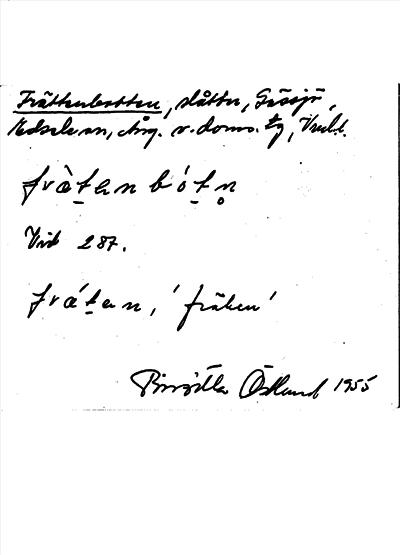 Frättenbotten, slåtter, Gåssjö,
Edsele sn, Ång. v. doms. tg, Vnld.
fràtan bótn
Vid 287.
frátan, 'fräken'
Birgitta Östlund 1955